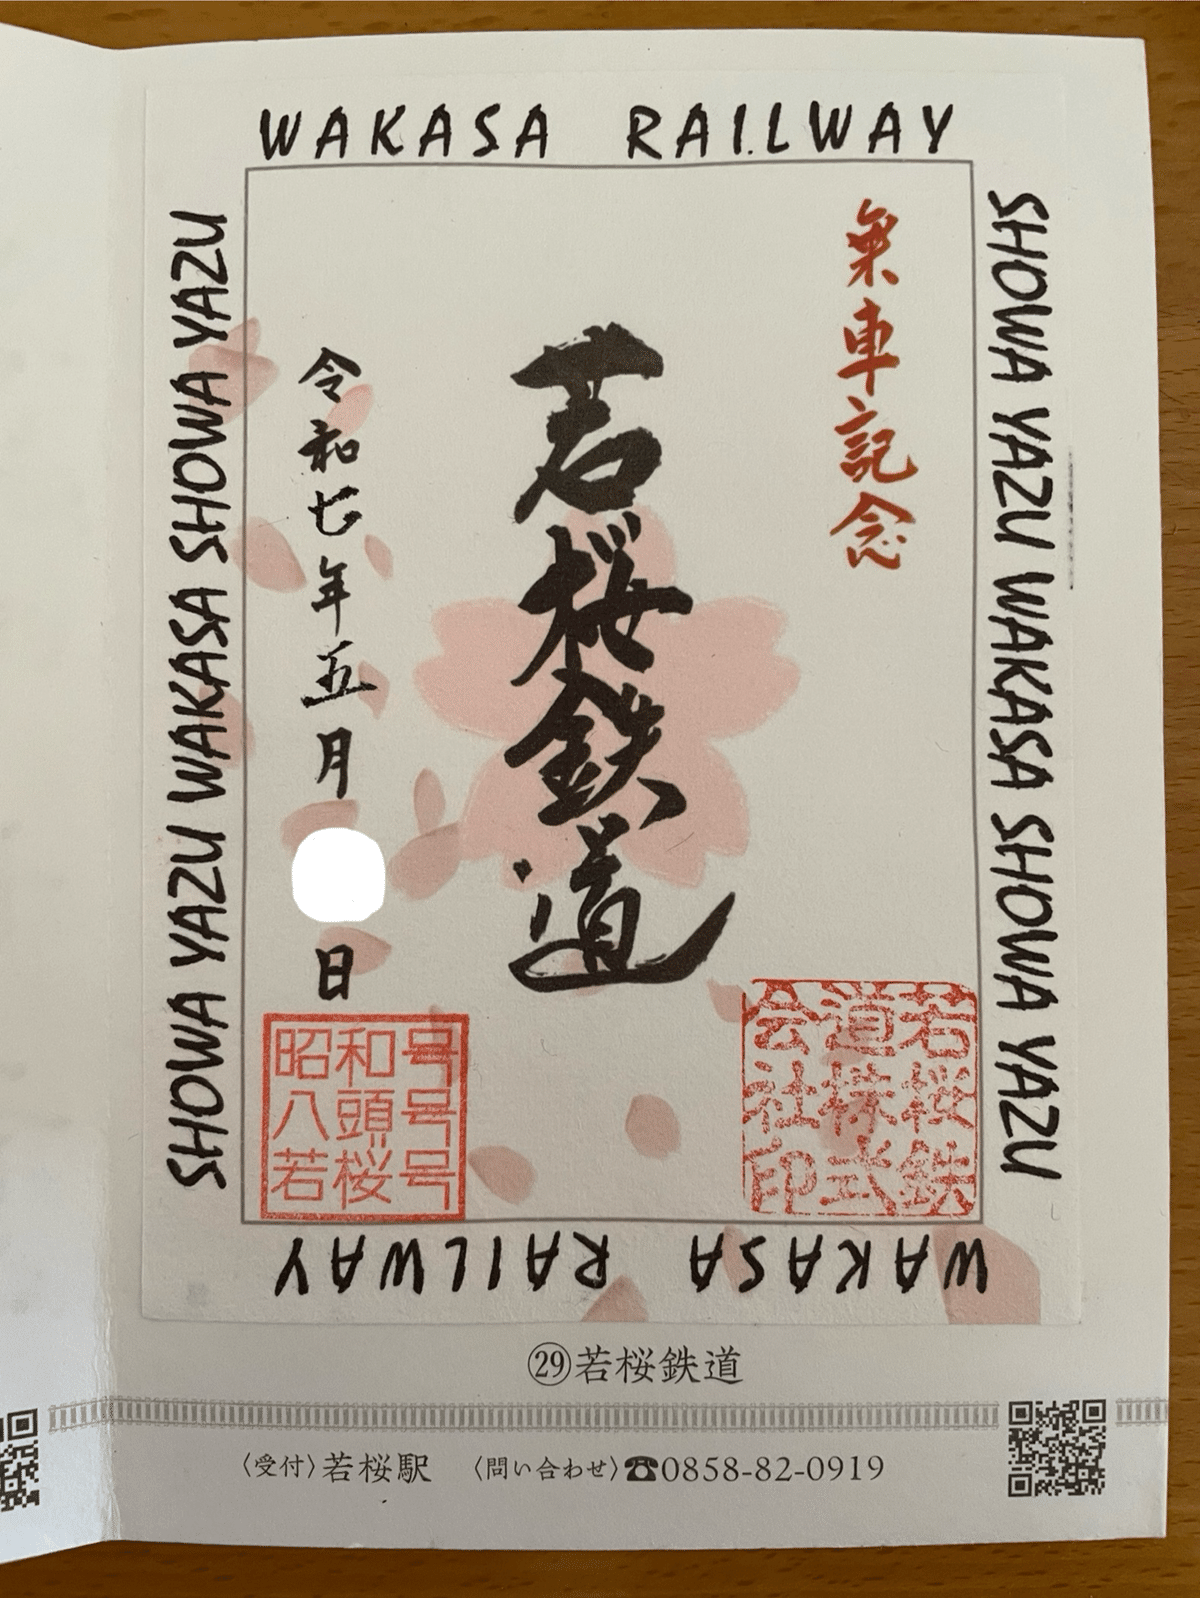 WAKASA RAILWAY
SHOWA YAZU WAKASA SHOWA YAZU
乗車記念
若桜鉄道
令和七年五月
日
SHOWA YAZU WAKASA SHOWA YAZU
若桜鉄
道株式
会社印
昭和号
八頭号
若桜号
WAKASA RAILWAY
㉙若桜鉄道
〈受付〉若桜駅 〈問い合わせ〉☎0858-82-0919